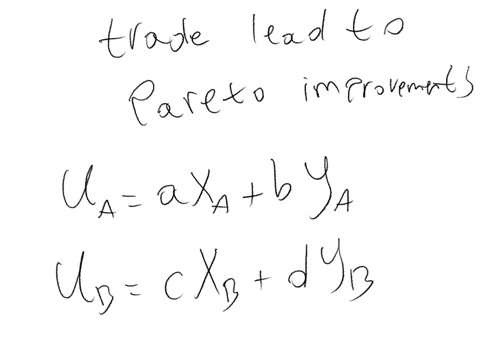 trade lead to
Pareto improvements
U_A = aX_A + bY_A
U_B = cX_B + dY_B